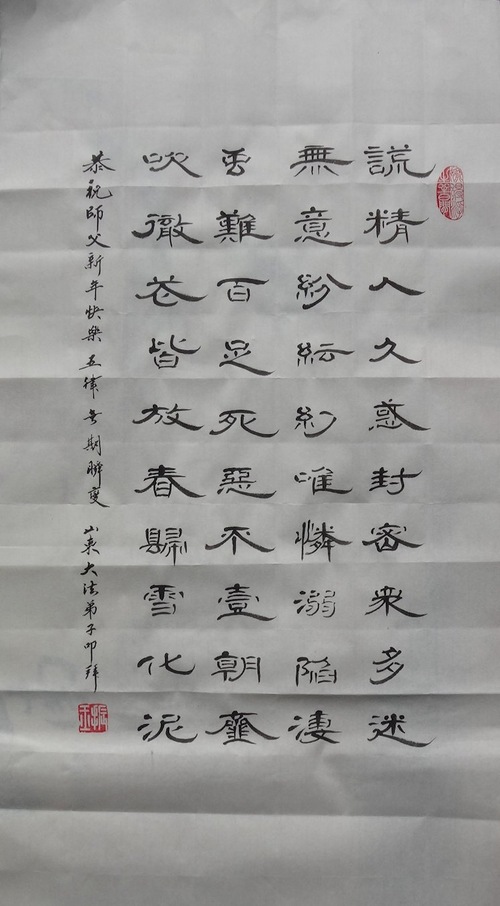 謊精人久惑封密衆多迷
無意紛紜唯憐溺陷淒
虫難百足死惡不壹朝齏
吹徹花皆放春歸雪化泥
恭祝師父新年快樂 五律 期瞬變 山東大法弟子叩拜